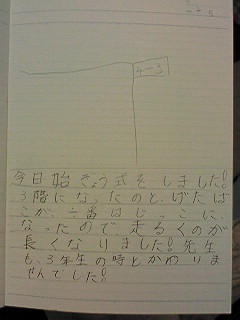 4-3
今日始ぎょう式をしました!!
3階になったのと、げたば
こが、一番はじっこに、
なったので、走るくのが
長くなりました!!先生
も、3年生の時とかわりま
せんでした!!